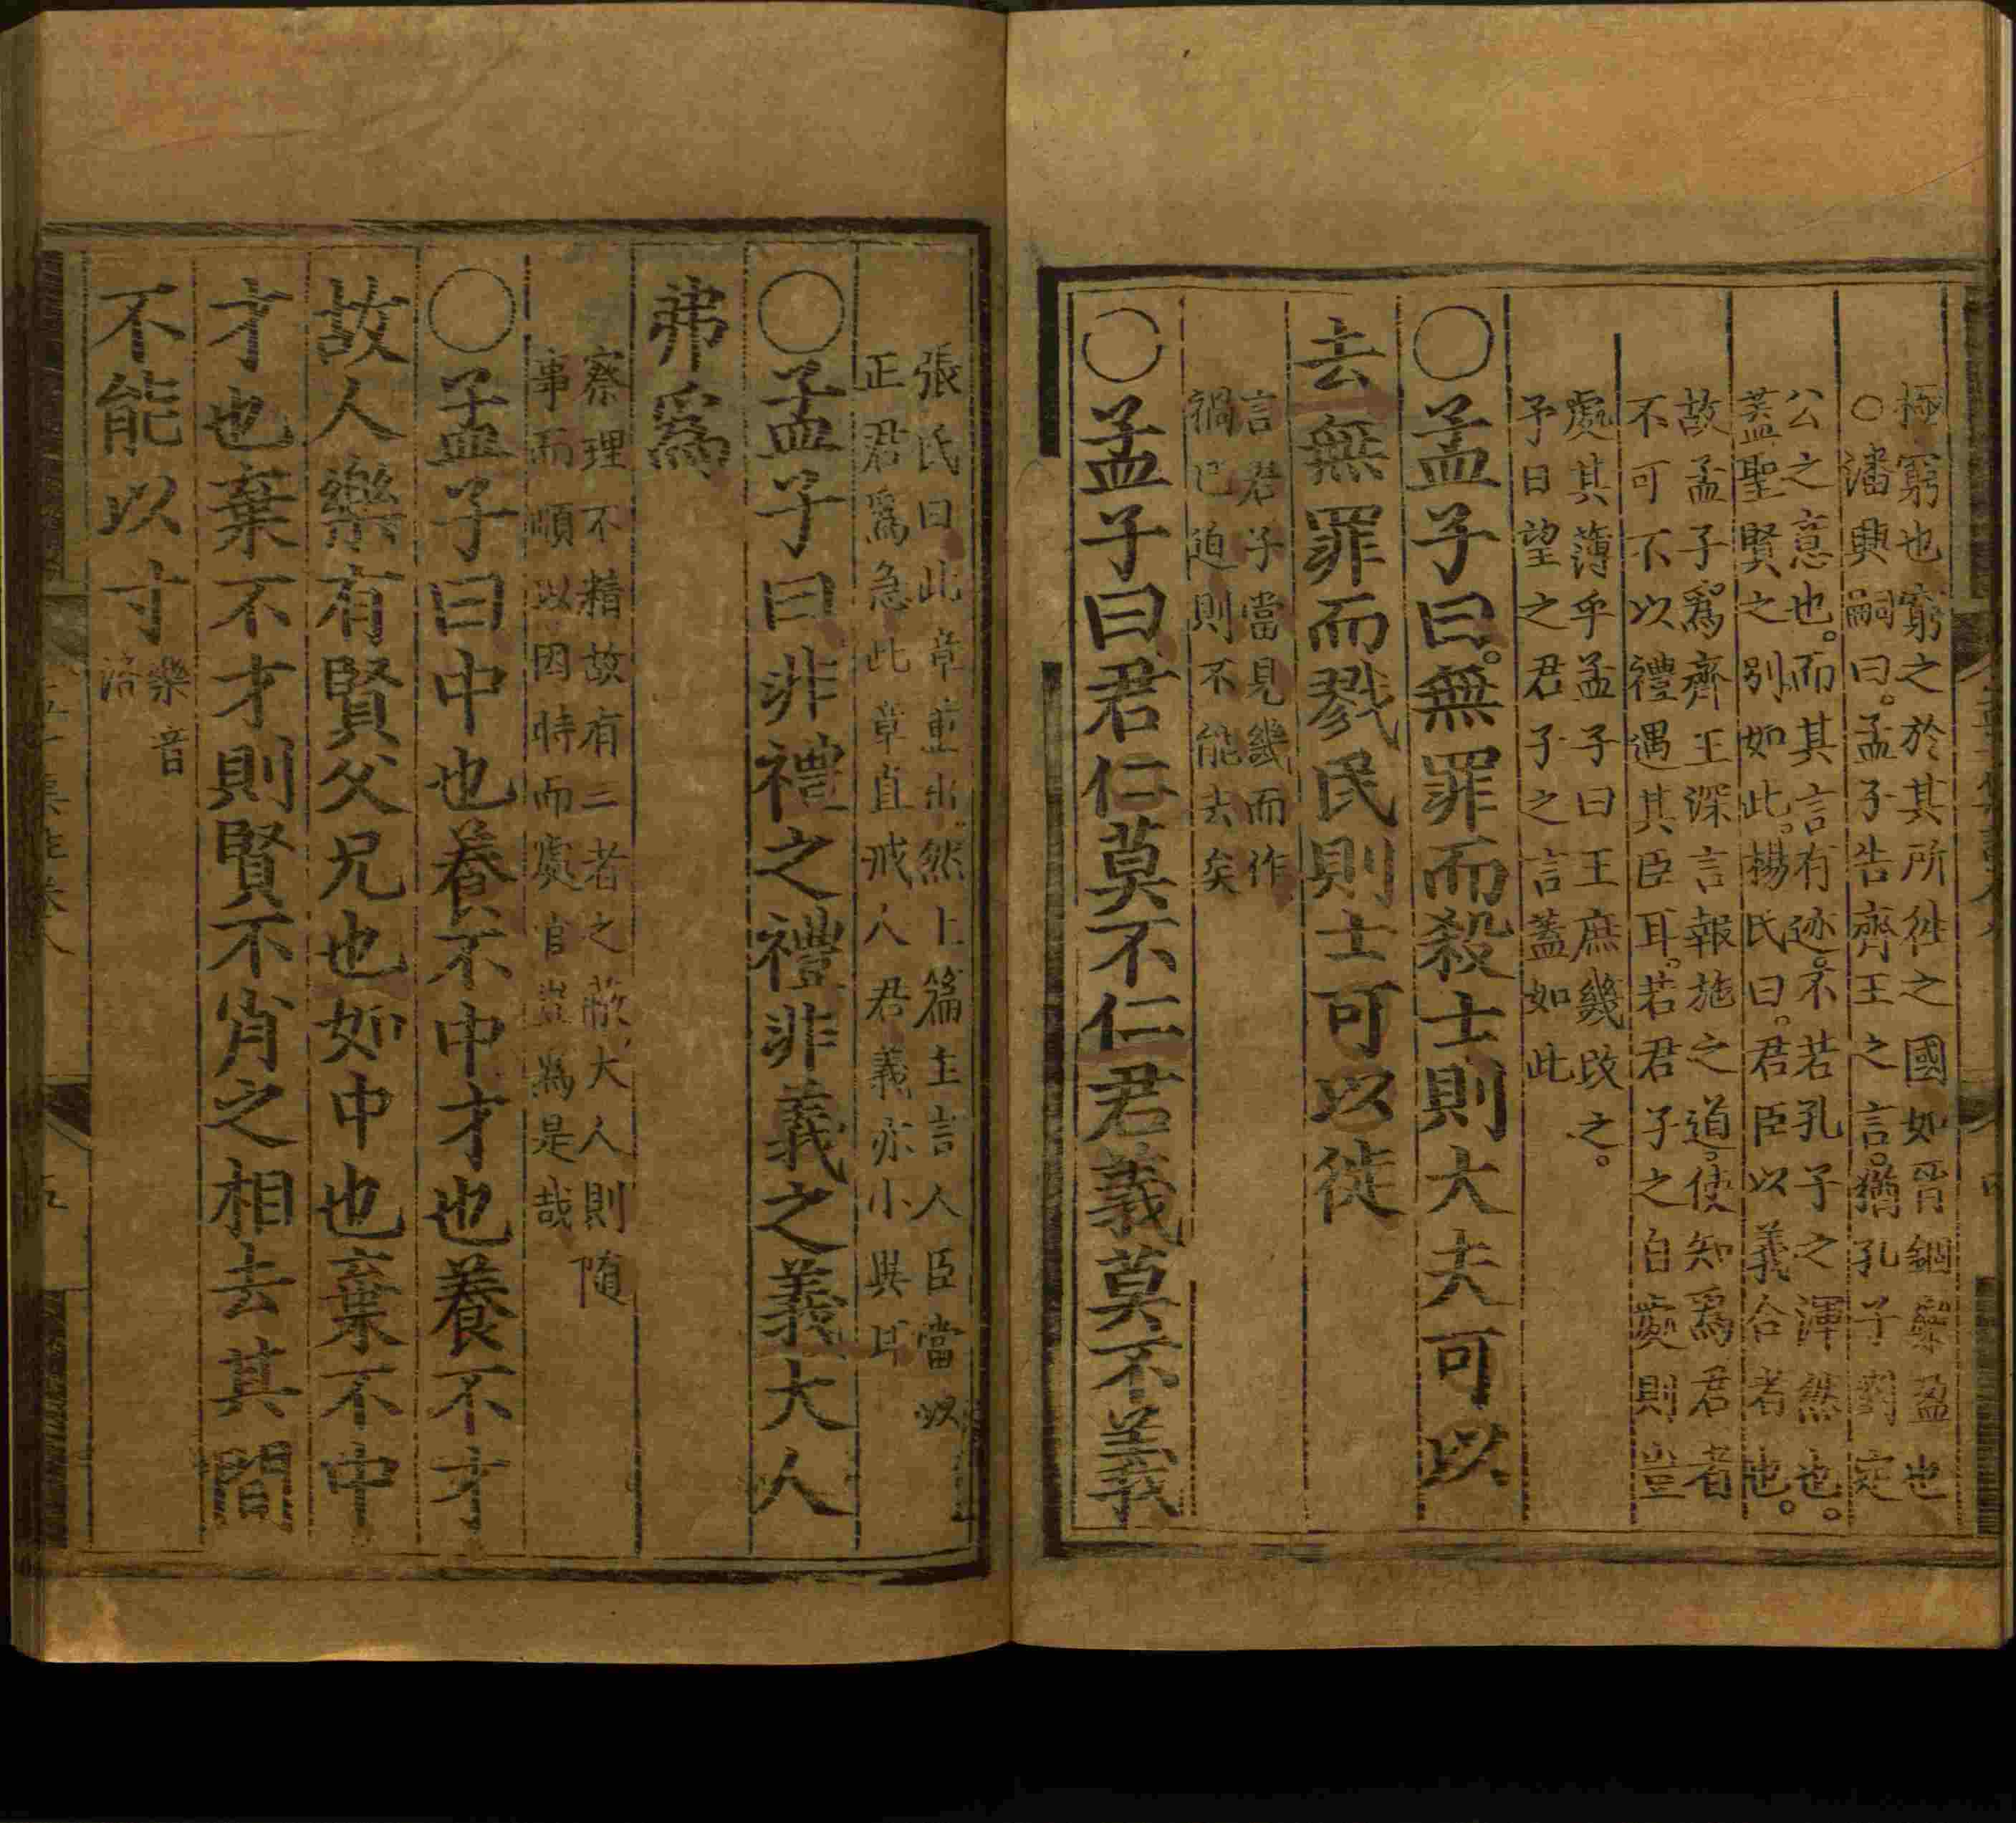 極窮也窮之於其所徃之國如晉錮欒盈也
○潘興嗣曰孟子告齊王之言猶孔子對定
公之意也而其言有迹不若孔子之渾然也
蓋聖賢之別如此楊氏曰君臣以義合者也
故孟子爲齊王深言報施之道使知爲君者
不可不以禮遇其臣耳若君子之自處則豈
處其薄乎孟子曰王庶幾改之
予日望之君子之言蓋如此
○孟子曰無罪而殺士則大夫可以
去無罪而戮民則士可以徙
言君子當見幾而作
禍已迫則不能去矣
○孟子曰君仁莫不仁君義莫不義
張氏曰此章重出然上篇主言人臣當以
正君爲急此章直戒人君義亦小異耳
○孟子曰非禮之禮非義之義大人
弗爲
察理不精故有二者之蔽大人則隨
事而順以因時而處宜豈爲是哉
○孟子曰中也養不中才也養不才
故人樂有賢父兄也如中也棄不中
才也棄不才則賢不肖之相去其間
不能以寸
樂音
洛